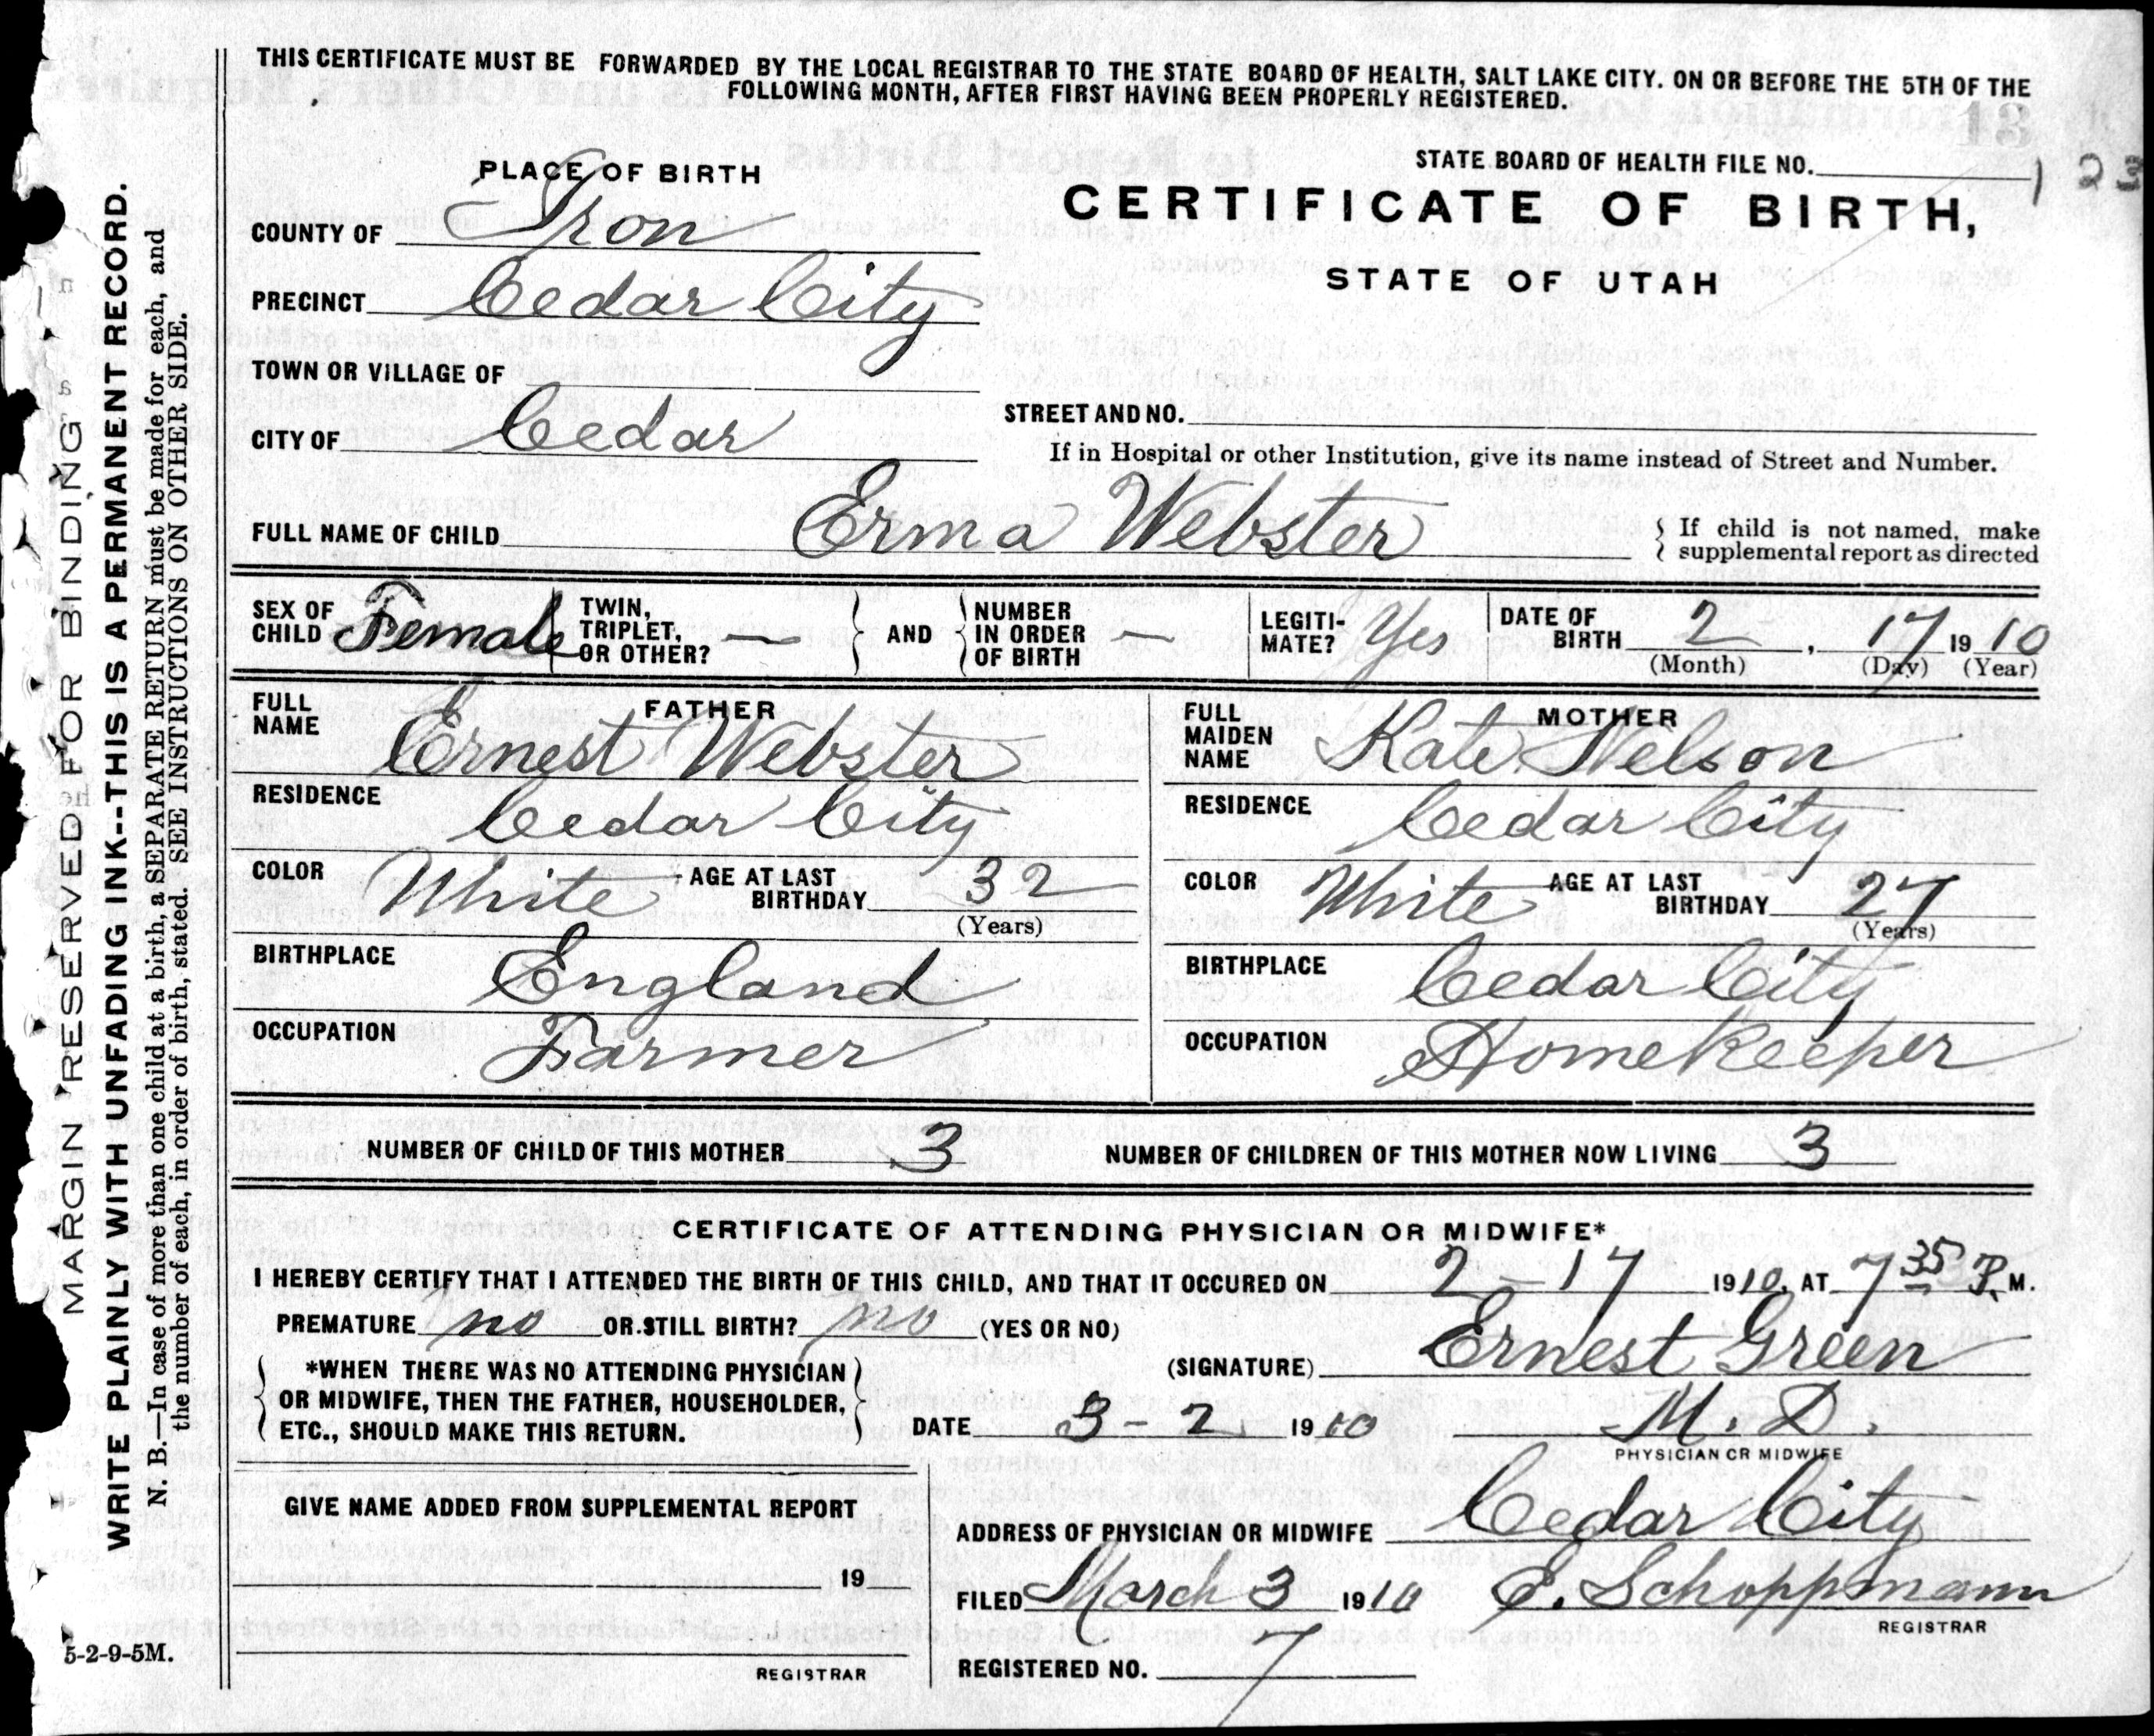 THIS CERTIFICATE MUST BE FORWARDED BY THE LOCAL REGISTRAR TO THE STATE BOARD OF HEALTH, SALT LAKE CITY. ON OR BEFORE THE 5TH OF THE
FOLLOWING MONTH, AFTER FIRST HAVING BEEN PROPERLY REGISTERED.
MARGIN RESERVED FOR BINDING
WRITE PLAINLY WITH UNFADING INK--THIS IS A PERMANENT RECORD.
N. B.—In case of more than one child at a birth, a SEPARATE RETURN must be made for each, and
the number of each, in order of birth, stated. SEE INSTRUCTIONS ON OTHER SIDE.
PLACE OF BIRTH
STATE BOARD OF HEALTH FILE NO. 123
CERTIFICATE OF BIRTH,
STATE OF UTAH
COUNTY OF Iron
PRECINCT Cedar City
TOWN OR VILLAGE OF
CITY OF Cedar
STREET AND NO.
If in Hospital or other Institution, give its name instead of Street and Number.
FULL NAME OF CHILD Erma Webster
{ If child is not named, make
supplemental report as directed
SEX OF CHILD Female
TWIN, TRIPLET, OR OTHER? —
} AND {
NUMBER IN ORDER OF BIRTH —
LEGITI-MATE? Yes
DATE OF BIRTH 2, 17 1910
(Month) (Day) (Year)
FATHER
FULL NAME Ernest Webster
RESIDENCE Cedar City
COLOR White AGE AT LAST BIRTHDAY 32
(Years)
BIRTHPLACE England
OCCUPATION Farmer
MOTHER
FULL MAIDEN NAME Kate Nelson
RESIDENCE Cedar City
COLOR White AGE AT LAST BIRTHDAY 27
(Years)
BIRTHPLACE Cedar City
OCCUPATION Homekeeper
NUMBER OF CHILD OF THIS MOTHER 3 NUMBER OF CHILDREN OF THIS MOTHER NOW LIVING 3
CERTIFICATE OF ATTENDING PHYSICIAN OR MIDWIFE*
I HEREBY CERTIFY THAT I ATTENDED THE BIRTH OF THIS CHILD, AND THAT IT OCCURED ON 2-17 1910, AT 7 35 P. M.
PREMATURE no OR STILL BIRTH? no (YES OR NO)
{ *WHEN THERE WAS NO ATTENDING PHYSICIAN
OR MIDWIFE, THEN THE FATHER, HOUSEHOLDER,
ETC., SHOULD MAKE THIS RETURN. }
(SIGNATURE) Ernest Green
DATE 3-2 1910 M. D.
PHYSICIAN OR MIDWIFE
GIVE NAME ADDED FROM SUPPLEMENTAL REPORT
19
REGISTRAR
ADDRESS OF PHYSICIAN OR MIDWIFE Cedar City
FILED March 3 1910 E. Schoppmann
REGISTRAR
REGISTERED NO. 7
5-2-9-5M.